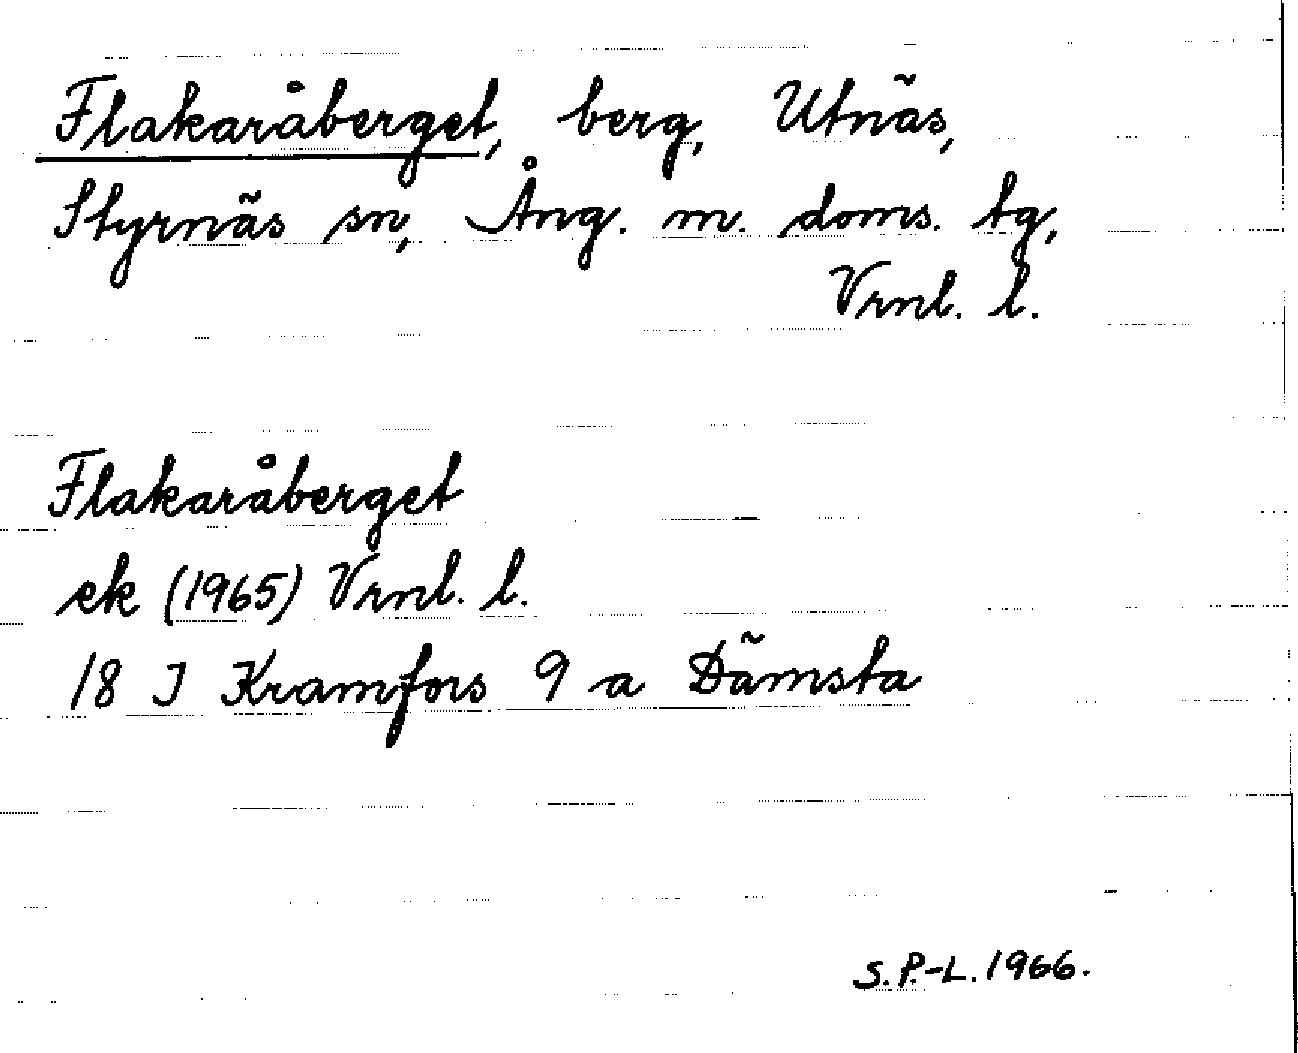 Flakaråberget, berg, Utnäs,
Styrnäs sn, Ång. m. doms. tg,
Vrnl. l.
Flakaråberget
ek (1965) Vrnl. l.
18 I Kramfors 9 a Dämsta
S.P.-L. 1966.